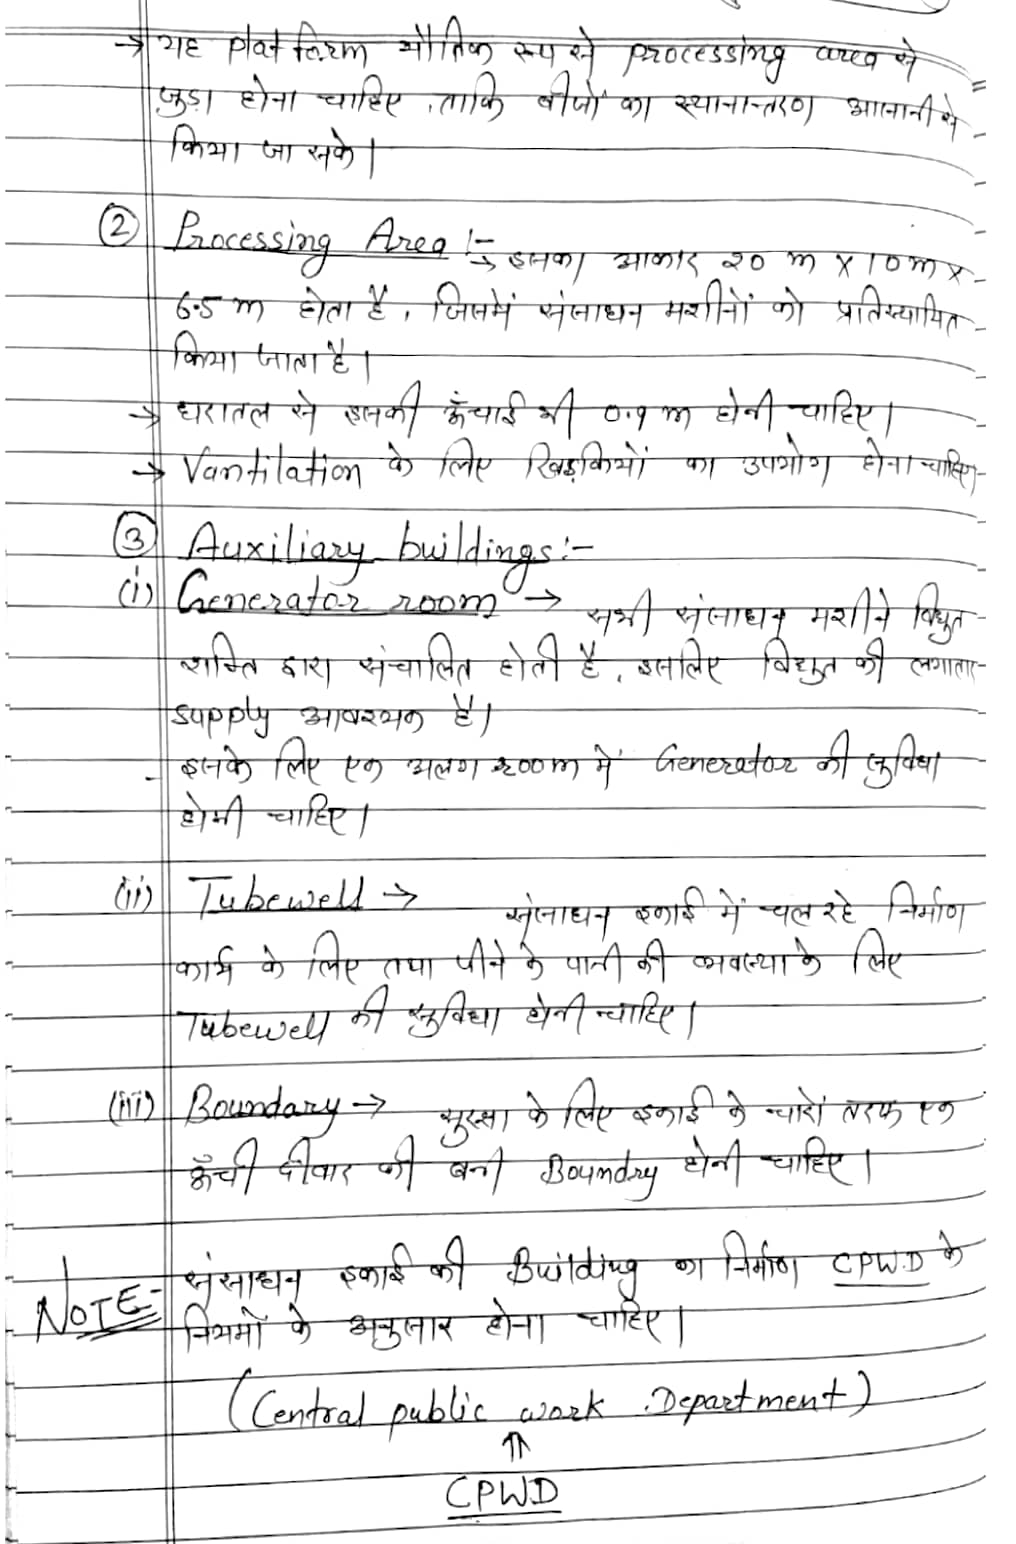 → यह platform भौतिक रूप से processing area से
जुड़ा होना चाहिए, ताकि बीजों का स्थानान्तरण आसानी से
किया जा सके।
② Processing Area :-
→ इसका आकार 20 m x 10 m x
6.5 m होता है, जिसमें संसाधन मशीनों को प्रतिस्थापित
किया जाता है।
→ धरातल से इसकी ऊँचाई भी 0.9 m होनी चाहिए।
→ Vantilation के लिए खिड़कियों का उपयोग होना चाहिए
③ Auxiliary buildings:-
(i) Generator room → सभी संसाधन मशीने विधुत
शक्ति द्वारा संचालित होती है, इसलिए विद्युत की लगातार
supply आवश्यक है।
- इसके लिए एक अलग room में Generator की सुविधा
होनी चाहिए।
(ii) Tubewell → संसाधन इकाई में चल रहे निर्माण
कार्य के लिए तथा पीने के पानी की व्यवस्था के लिए
Tubewell की सुविधा होनी चाहिए।
(iii) Boundary → सुरक्षा के लिए इकाई के चारों तरफ एक
ऊँची दीवार की बनी Boundry होनी चाहिए।
NOTE- संसाधन इकाई की Building का निर्माण CPWD के
नियमों के अनुसार होना चाहिए।
(Central public work Department)
⇑
CPWD